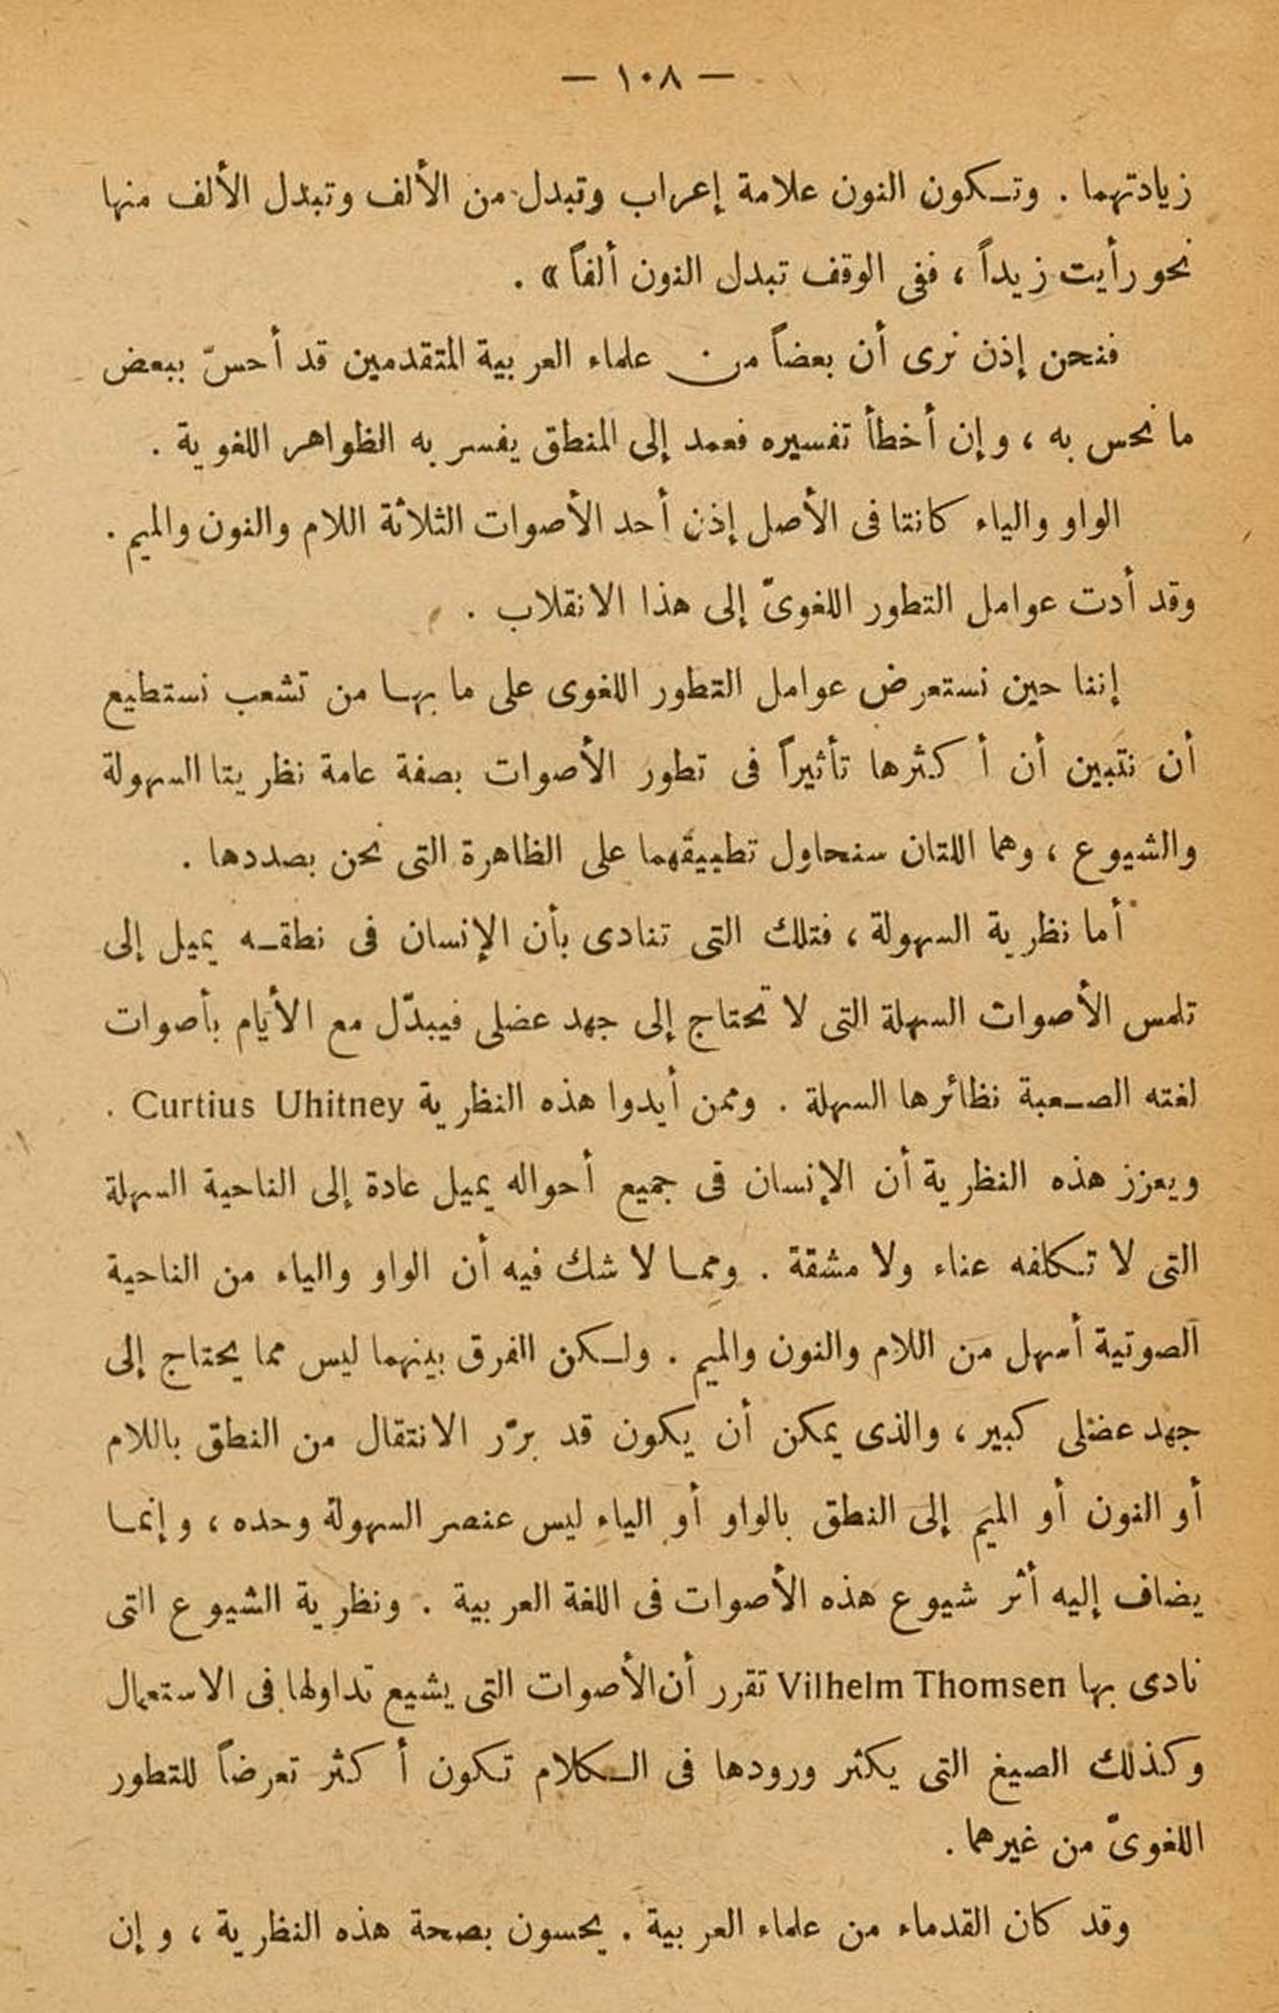 — ١٠٨ —
زيادتهما . وتكون النون علامة إعراب وتبدل من الألف وتبدل الألف منها
نحو رأيت زيداً ، ففى الوقف تبدل النون ألفاً » .
فنحن إذن نرى أن بعضاً من علماء العربية المتقدمين قد أحسّ ببعض
ما نحس به ، وإن أخطأ تفسيره فعمد إلى المنطق يفسر به الظواهر اللغوية .
الواو والياء كانتا فى الأصل إذن أحد الأصوات الثلاثة اللام والنون والميم .
وقد أدت عوامل التطور اللغوىّ إلى هذا الانقلاب .
إننا حين نستعرض عوامل التطور اللغوى على ما بها من تشعب نستطيع
أن نتبين أن أكثرها تأثيراً فى تطور الأصوات بصفة عامة نظريتا السهولة
والشيوع ، وهما اللتان سنحاول تطبيقهما على الظاهرة التى نحن بصددها .
أما نظرية السهولة ، فتلك التى تنادى بأن الإنسان فى نطقه يميل إلى
تلمس الأصوات السهلة التى لا تحتاج إلى جهد عضلى فيبدّل مع الأيام بأصوات
لغته الصعبة نظائرها السهلة . وممن أيدوا هذه النظرية Curtius Uhitney .
ويعزز هذه النظرية أن الإنسان فى جميع أحواله يميل عادة إلى الناحية السهلة
التى لا تكلفه عناء ولا مشقة . ومما لا شك فيه أن الواو والياء من الناحية
الصوتية أسهل من اللام والنون والميم . ولكن الفرق بينهما ليس مما يحتاج إلى
جهد عضلى كبير ، والذى يمكن أن يكون قد برّر الانتقال من النطق باللام
أو النون أو الميم إلى النطق بالواو أو الياء ليس عنصر السهولة وحده ، وإنما
يضاف إليه أثر شيوع هذه الأصوات فى اللغة العربية . ونظرية الشيوع التى
نادى بها Vilhelm Thomsen تقرر أن الأصوات التى يشيع تداولها فى الاستعمال
وكذلك الصيغ التى يكثر ورودها فى الكلام تكون أكثر تعرضاً للتطور
اللغوىّ من غيرهما .
وقد كان القدماء من علماء العربية . يحسون بصحة هذه النظرية ، وإن